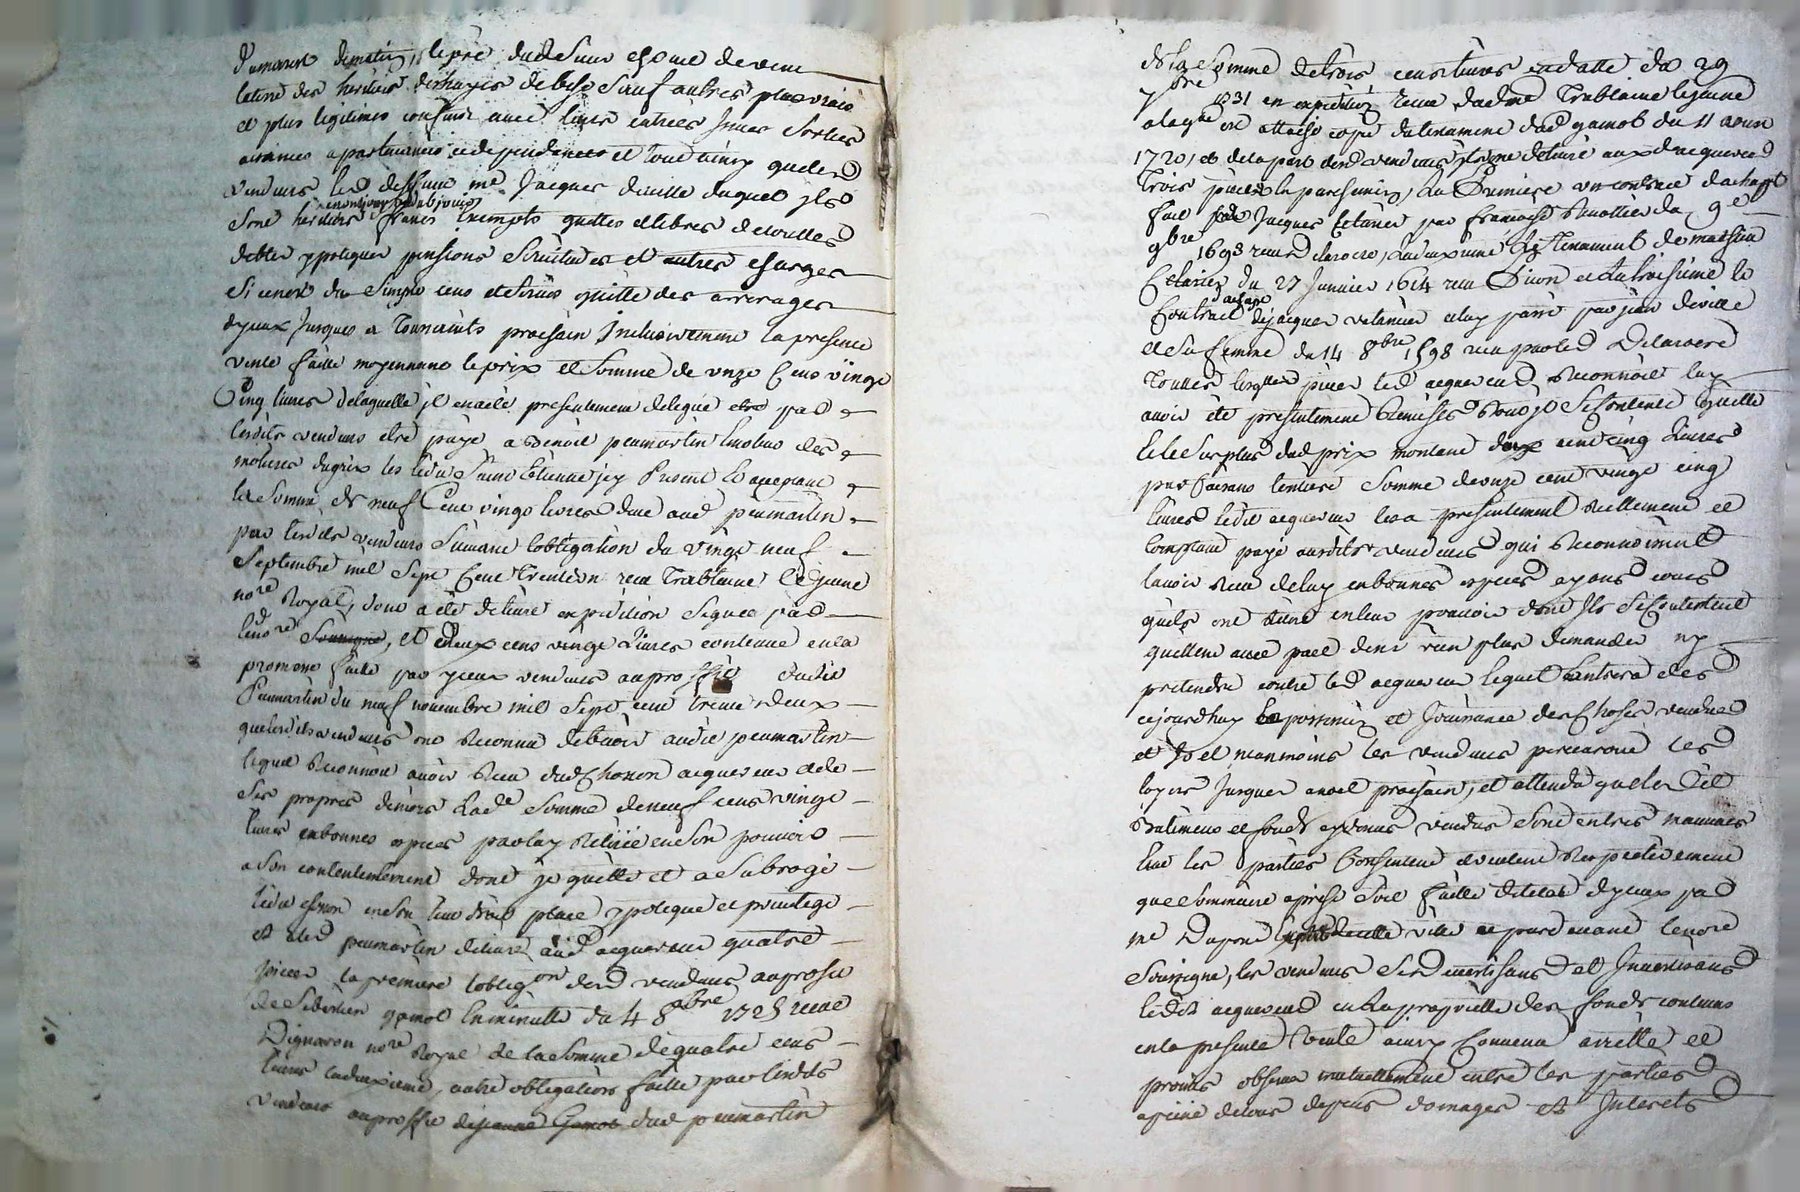 dumarest de matin, le pré dud Sieur chome de vent
laterre des heritiers deshayes de bize Sauf autres plus vrais
et plus legitimes confins avec leurs entrées Jssues Sorties
aisances apartenances et dependences et tout ainsy queled
vendeurs led deffunt me Jacques deville duquel jls
Sont heritiers francs Exempts quittes et libres de touttes
debtes ypoteques pensions Servitudes et autres charges
Si cenest du Simple cens et Servis quitte des arrerages
dyceux Jusques a Toussaints prochain Inclusivement la presente
vente faitte moyennant le prix et Somme de onze Cens vingt
Cinq livres delaquelle jl en a eté presentement delegué par
lesdits vendeurs etre payé a Benoit peumartin
St Etienne jcy Present et acceptant
la Somme de neuf Cent vingt livres due aud peumartin
par lesdits vendeurs Suivant l'obligation du vingt neuf
Septembre mil Sept Cent Trente un receu Trablaine le jeune
nore Royal, dont a été delivré expedition Signée par
led nore, et deux cens vingt Livres contenue en la
promesse faitte par yceux vendeurs au proffit dudit
Peumartin du neuf novembre mil Sept cent trente deux
quelesdits vendeurs ont Reconnu debvoir audit peumartin
lequel Reconnoit avoir Receu dud Chomon acquereur et de
Ses propres deniers Lade Somme de neuf cens vingt
livres en bonnes especes par luy Retirée en Son pouvoir
a Son contentement dont jl quitte et a Subrogé
ledit chomon en Son lieu droit place ypoteque et privilege
et aled peumartin delivré aud acquereur quatre
pieces la premiere l'obligon desd vendeurs au profit
de Sebastien gamot en minutte du 4 8bre 1725 receue
Dignaron nore Royal de la Somme de quatre cens
livres la deuxieme, autre obligation faitte par lesdits
vendeurs au proffit de jeanne Gamot dud peumartin
de la Somme de trois cens livres en datte du 29
7bre 1731 en expedition receue dudme Trablaine le jeune
alaqlle est attaché copie du testament dud gamot du 11 aoust
1720, et de la part desd vendeurs
trois pieces en parchemin, La Premiere un contract dachapt
fait par Jacques par francois du 9e
9bre 1698 receu delaroere, La deuxieme Le Testament de mathieu
du 27 Janvier 1614 receu et la troisieme le
Contract d'achapt de jacques a luy passé par jean deville
et Sa femme du 14 8bre 1598 receu par led Delaroere
Touttes lesquelles pieces led acquereur Reconnoit luy
avoir été presentement Remises dont jl Se Contente et quitte
et le Surplus dud prix montant deux cent cinq Livres
pour faisant l'entiere Somme de onze cent vingt cinq
livres ledit acquereur les a presentement Reellement et
Comptant payé auxdits vendeurs qui Reconnoissent
l'avoir Receu de luy en bonnes especes ayans cours
quils ont Retiré en leur pouvoir dont Jls Se Contentent
quittent avec pact den rien plus demander ny
pretendre contre led acquereur lequel Entrera des
cejourdhuy en possession et Jouissance des Choses vendues
et neanmoins les vendeurs percevront les
loyers Jusques a noel prochain, et attendu que lesdits
Batimens et fonds cydevant vendus Sont en tres mauvais
état les parties Consentent et veulent Respectivement
que Sommaire aprise Soit faitte de l'etat dyceux par
me Dupont ville et pardevant le nore
Soussigné, les vendeurs Se devestissans et Jnvestissans
ledit acquereur en La proprietté des fonds contenus
en la presente vente ainsy Convenu arretté et
promis observer mutuellement entre les parties
a peine de tous depens domages et Interets